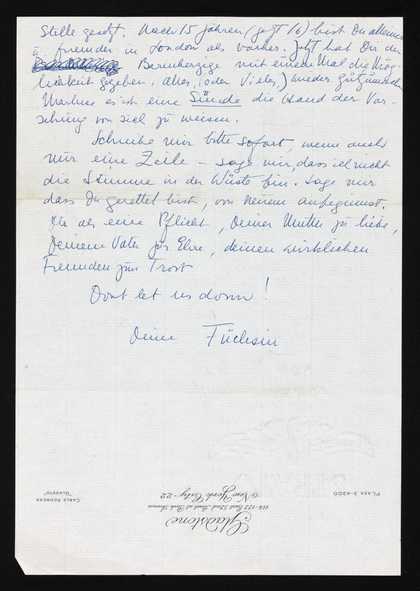 Stelle gesetzt. Nach 15 Jahren (jetzt 16) bist Du alleiner
fremder in London als vorher. Jetzt hat Dir der
Barmherzige mit einem Mal die Mög-
lichkeit gegeben, alles, (oder Vieles,) wieder gutzumachen
Martin es ist eine Sünde die Hand der Vor-
sehung von sich zu weisen.
Schreibe mir bitte sofort, wenn auch
nur eine Zeile – sage mir, dass ich nicht
die Stimme in der Wüste bin. Sage mir
dass Du gerettet bist, von Neuem anfegennst.
Tu als eine Pflicht, Deiner Mutter zu liebe,
Deinem Vater zur Ehre, deinen wirklichen
Freunden zum Trost
Dont let us down!
Deine Füchsin
PLAZA 3-4300
Gladstone
114-122 East 52nd Street at Park Avenue
New York City-22
CABLE ADDRESS
"GLADSTO"